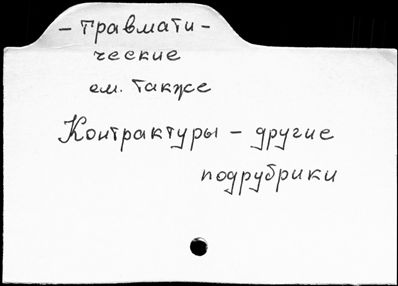 - Травмати-
ческие
см. также
Контрактуры - другие
подрубрики